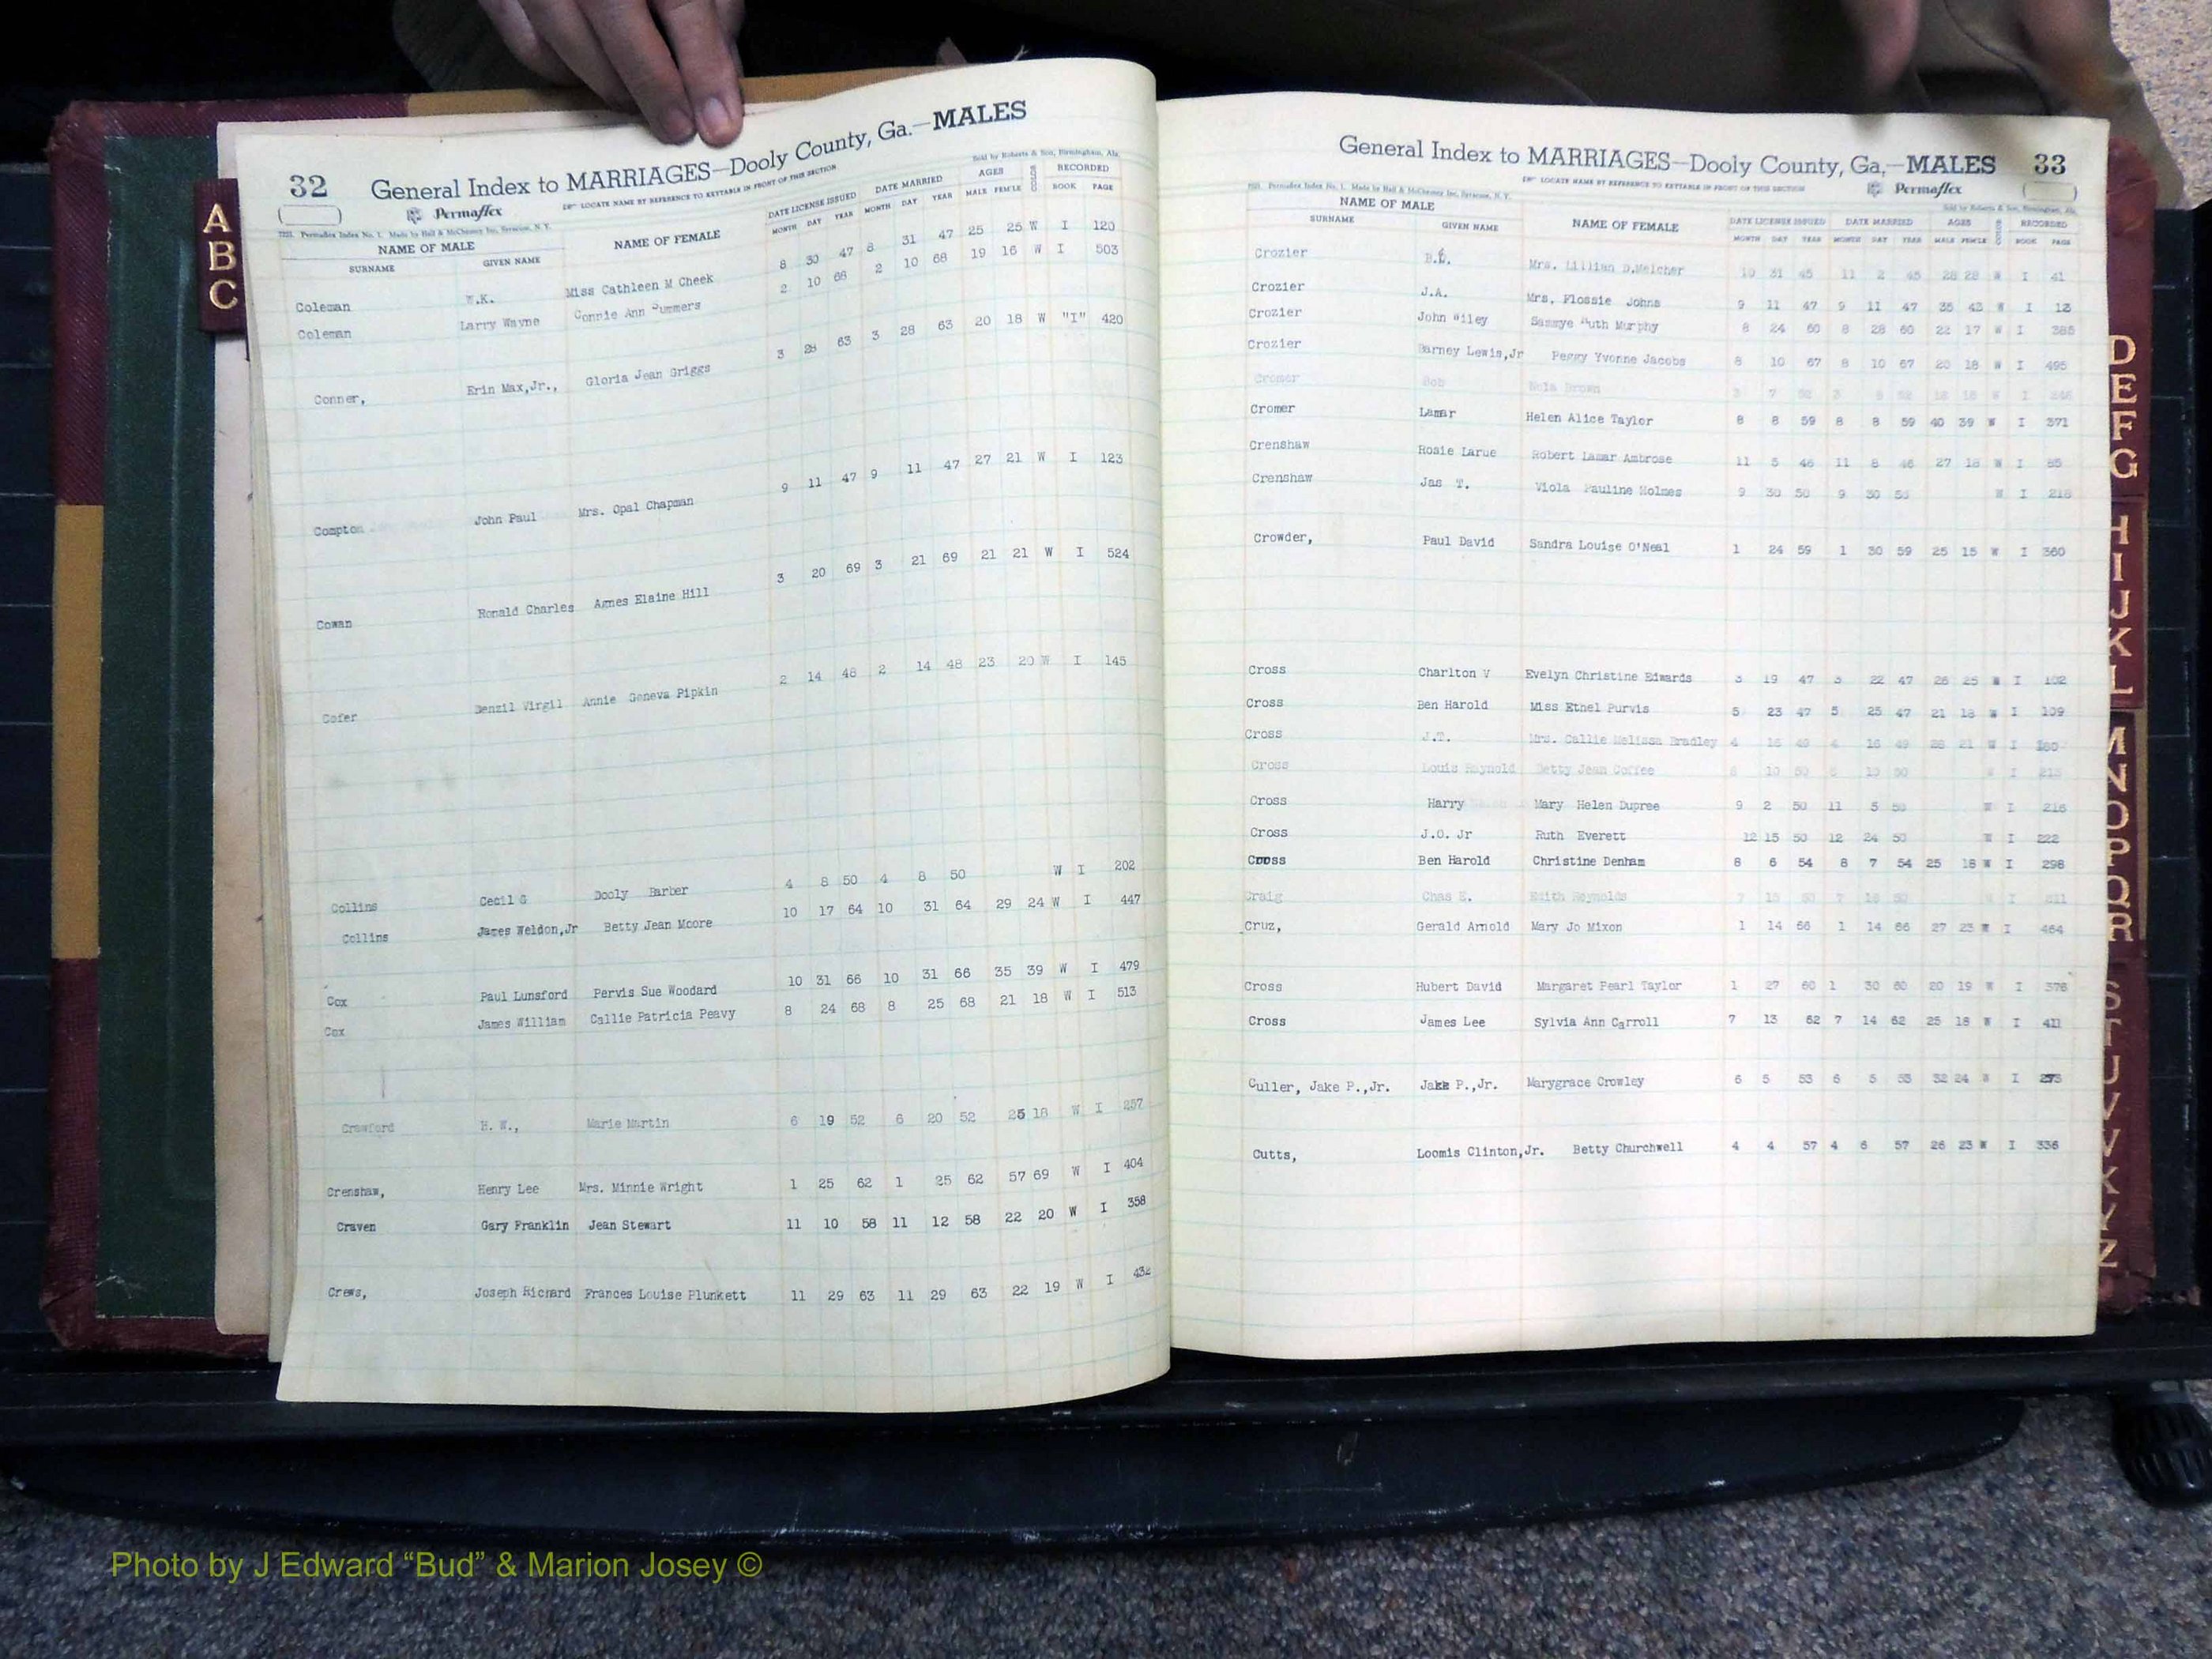 A
B
C
32
General Index to MARRIAGES—Dooly County, Ga.—MALES
Permaflex
LOCATE NAME BY REFERENCE TO KEYTABLE IN FRONT OF THIS SECTION
Sold by Roberts & Son, Birmingham, Ala.
Permaflex Index No. 1. Made by Hall & McChesney Inc, Syracuse, N. Y.
NAME OF MALE NAME OF FEMALE DATE LICENSE ISSUED DATE MARRIED AGES COLOR RECORDED
SURNAME GIVEN NAME MONTH DAY YEAR MONTH DAY YEAR MALE FEM'LE BOOK PAGE
Coleman W.K. Miss Cathleen M Cheek 8 30 47 8 31 47 25 25 W I 120
Coleman Larry Wayne Connie Ann Summers 2 10 68 2 10 68 19 16 W I 503
Conner, Erin Max,Jr., Gloria Jean Griggs 3 28 63 3 28 63 20 18 W "I" 420
Compton John Paul Mrs. Opal Chapman 9 11 47 9 11 47 27 21 W I 123
Cowan Ronald Charles Agnes Elaine Hill 3 20 69 3 21 69 21 21 W I 524
Cofer Denzil Virgil Annie Geneva Pipkin 2 14 48 2 14 48 23 20 W I 145
Collins Cecil G Dooly Barber 4 8 50 4 8 50 W I 202
Collins James Weldon,Jr Betty Jean Moore 10 17 64 10 31 64 29 24 W I 447
Cox Paul Lunsford Pervis Sue Woodard 10 31 66 10 31 66 35 39 W I 479
Cox James William Callie Patricia Peavy 8 24 68 8 25 68 21 18 W I 513
Crawford H. W., Marie Martin 6 19 52 6 20 52 25 18 W I 257
Crenshaw, Henry Lee Mrs. Minnie Wright 1 25 62 1 25 62 57 69 W I 404
Craven Gary Franklin Jean Stewart 11 10 58 11 12 58 22 20 W I 358
Crews, Joseph Richard Frances Louise Plunkett 11 29 63 11 29 63 22 19 W I 432
General Index to MARRIAGES—Dooly County, Ga,—MALES 33
LOCATE NAME BY REFERENCE TO KEYTABLE IN FRONT OF THIS SECTION
Permaflex
Permaflex Index No. 1. Made by Hall & McChesney Inc, Syracuse, N. Y.
Sold by Roberts & Son, Birmingham, Ala.
NAME OF MALE NAME OF FEMALE DATE LICENSE ISSUED DATE MARRIED AGES COLOR RECORDED
SURNAME GIVEN NAME MONTH DAY YEAR MONTH DAY YEAR MALE FEM'LE BOOK PAGE
Crozier Mrs. Lillian D.Melcher 10 31 45 11 2 45 28 28 W I 41
Crozier J.A. Mrs, Flossie Johns 9 11 47 9 11 47 35 43 W I
Crozier John Wiley Sammye Ruth Murphy 8 24 60 8 28 60 22 17 W I 385
Crozier Barney Lewis,Jr Peggy Yvonne Jacobs 8 10 67 8 10 67 20 18 W I 495
Cromer Bob Nola Brown
Cromer Lamar Helen Alice Taylor 8 8 59 8 8 59 40 39 W I 371
Crenshaw Rosie Larue Robert Lamar Ambrose 11 5 46 11 8 46 27 18 W I 85
Crenshaw Jas T. Viola Pauline Holmes 9 30 50 9 30 50 W I 218
Crowder, Paul David Sandra Louise O'Neal 1 24 59 1 30 59 25 15 W I 360
Cross Charlton V Evelyn Christine Edwards 3 19 47 3 22 47 26 25 W I 102
Cross Ben Harold Miss Ethel Purvis 5 23 47 5 25 47 21 18 W I 109
Cross J.T. Mrs. Callie Melissa Bradley 4 16 49 4 16 49 26 21 W I 180
Cross Louis Reynold Betty Jean Coffee 10 50 10 50 W I
Cross Harry Mary Helen Dupree 9 2 50 11 5 50 W I 216
Cross J.O. Jr Ruth Everett 12 15 50 12 24 50 W I 222
Cross Ben Harold Christine Denham 8 6 54 8 7 54 25 18 W I 298
Craig Chas E. Edith Reynolds
Cruz, Gerald Arnold Mary Jo Mixon 1 14 66 1 14 66 27 23 W I 464
Cross Hubert David Margaret Pearl Taylor 1 27 60 1 30 60 20 19 W I 376
Cross James Lee Sylvia Ann Carroll 7 13 62 7 14 62 25 18 W I 411
Culler, Jake P.,Jr. Jake P.,Jr. Marygrace Crowley 6 5 53 6 5 53 32 24 W I 273
Cutts, Loomis Clinton,Jr. Betty Churchwell 4 4 57 4 6 57 26 23 W I 336
D
E
F
G
H
I
J
K
L
M
N
O
P
Q
R
S
T
U
V
W
X
Y
Z
Photo by J Edward “Bud” & Marion Josey ©